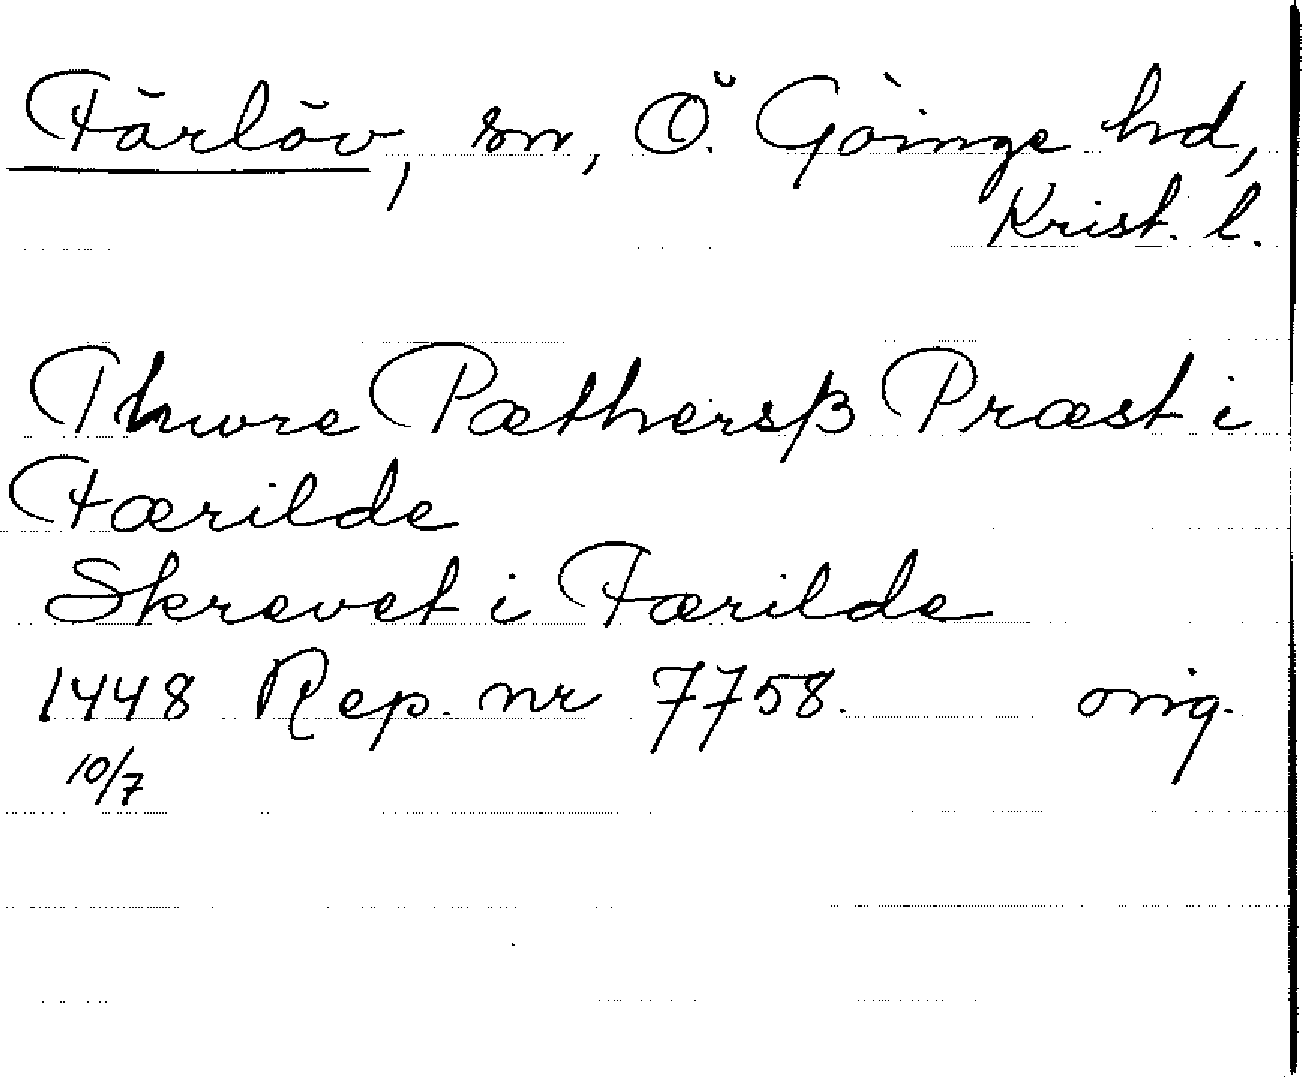 Färlöv, sn, Ö. Göinge hd,
Krist. l.
Thwre Pæthersβ Præst i
Færilde
Skrevet i Færilde
1448 Rep. nr 7758. orig.
10/7